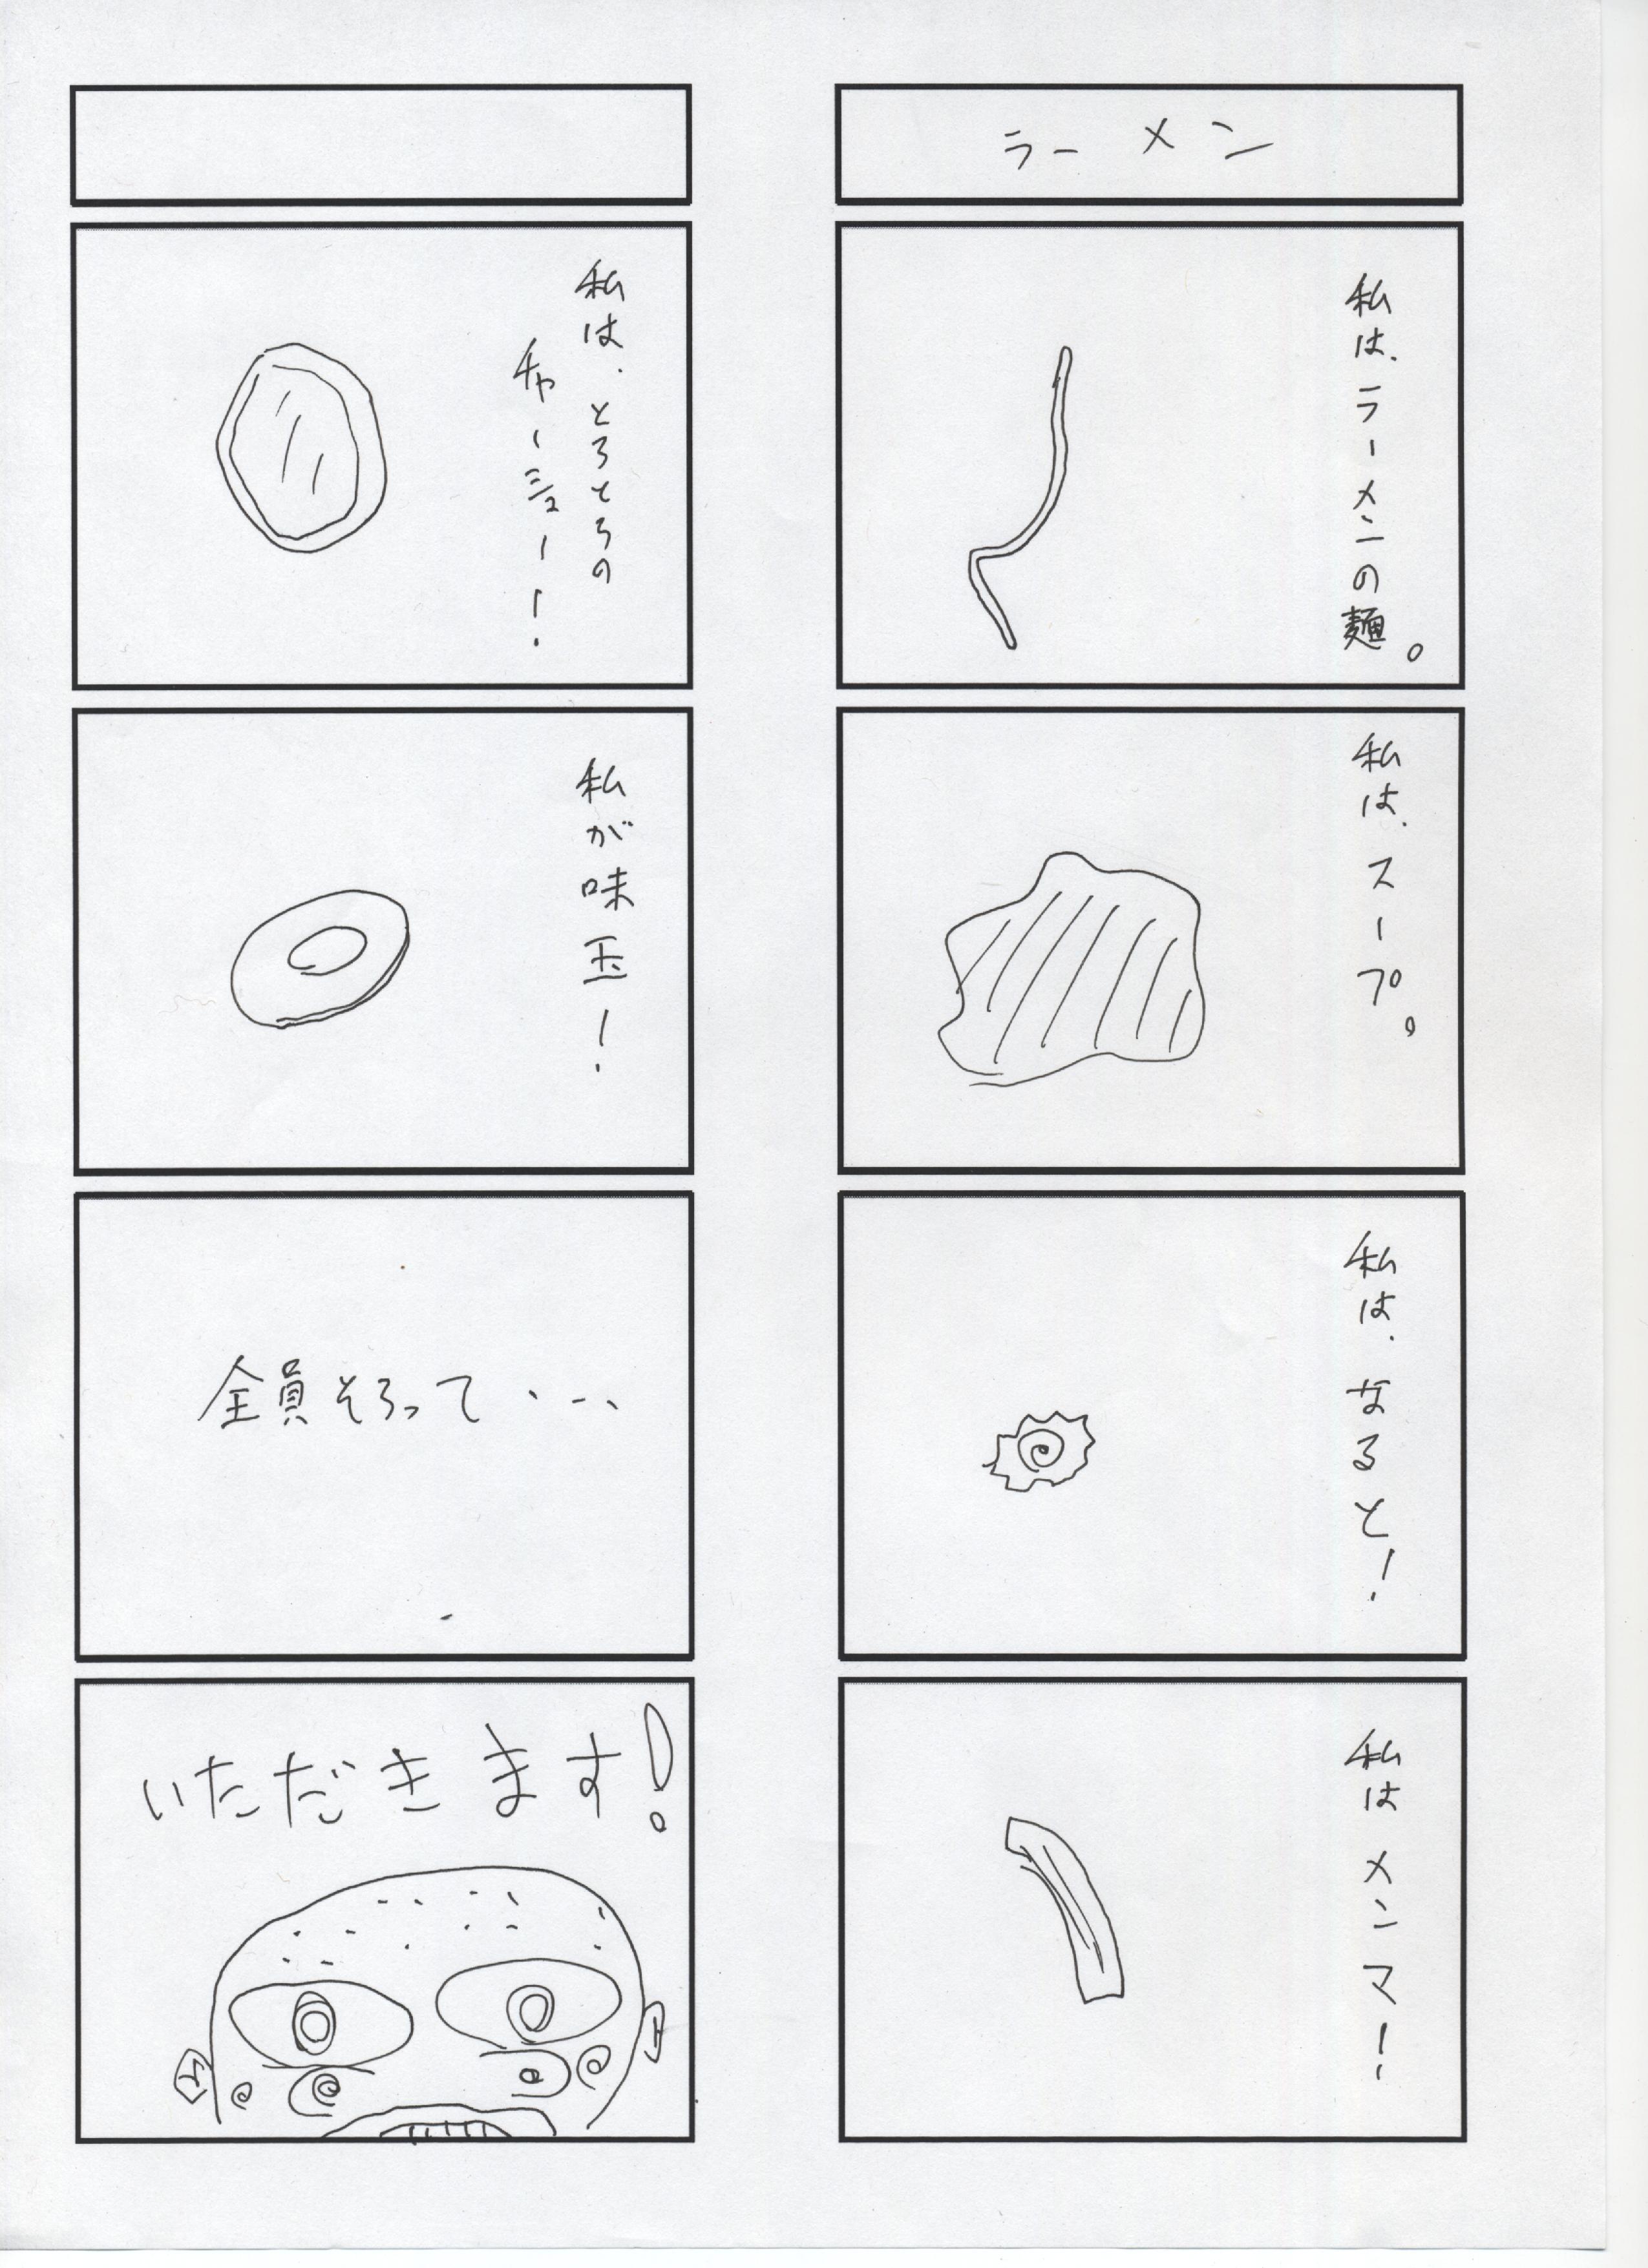 ラーメン
私は、ラーメンの麺。
私は、スープ。
私は、なると!
私はメンマ!
私は、とろとろの
チャーシュー!
私が味玉!
全員そろって・・・
いただきます!